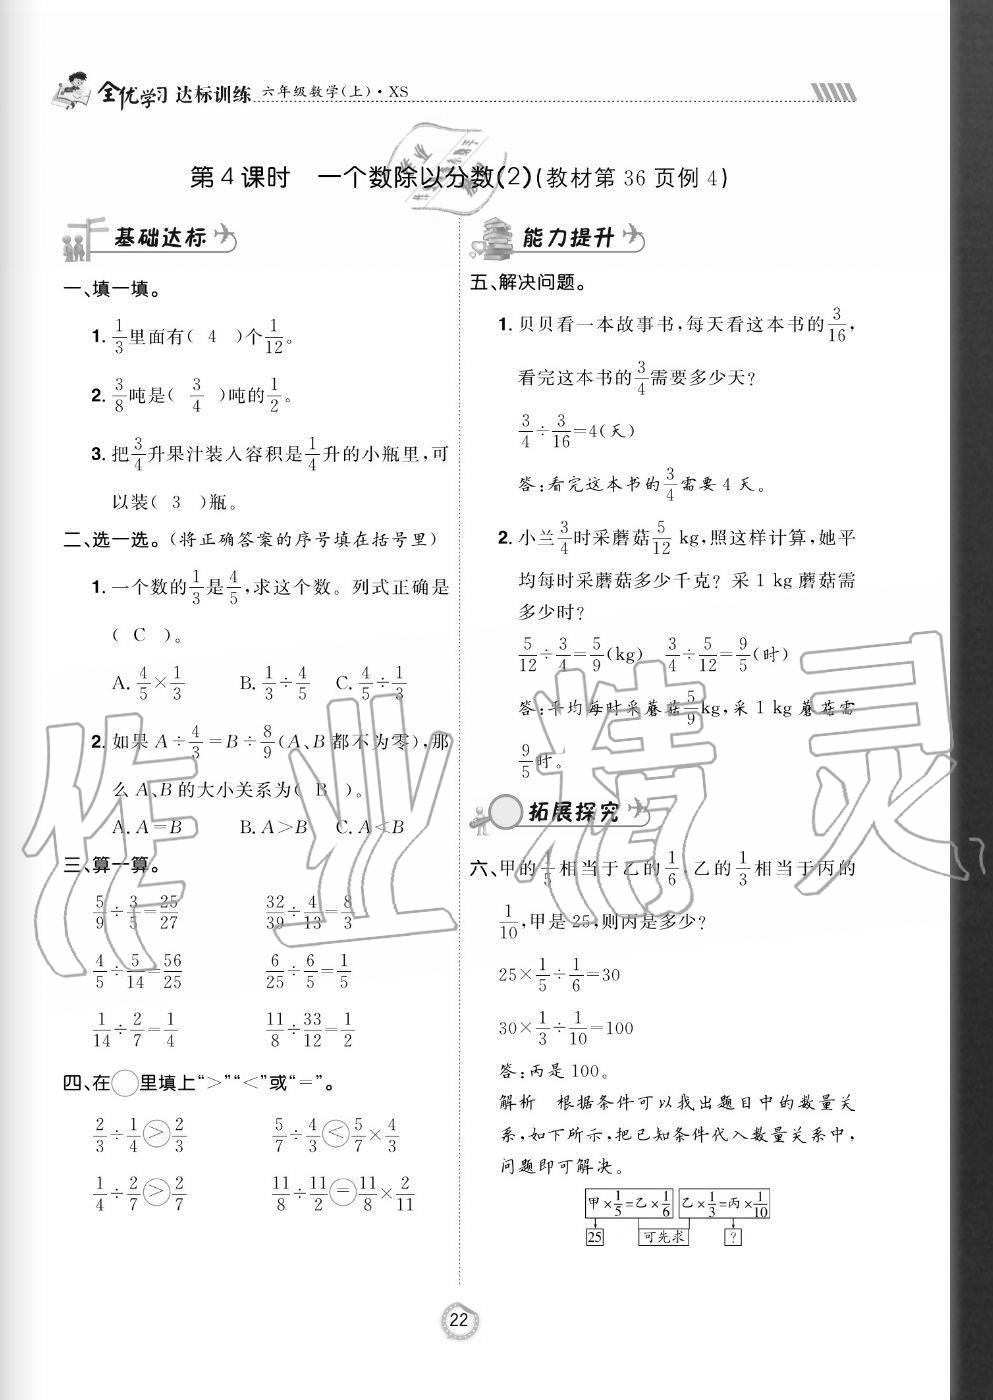 全优学习 达标训练 六年级数学(上)·XS
第4课时 一个数除以分数(2)(教材第36页例4)
基础达标
一、填一填。
1. 1/3里面有( 4 )个1/12。
2. 3/8吨是( 3/4 )吨的1/2。
3. 把3/4升果汁装入容积是1/4升的小瓶里,可
以装( 3 )瓶。
二、选一选。(将正确答案的序号填在括号里)
1. 一个数的1/3是4/5,求这个数。列式正确是
( C )。
A. 4/5×1/3 B. 1/3÷4/5 C. 4/5÷1/3
2. 如果A÷4/3=B÷8/9(A、B都不为零),那
么A、B的大小关系为( B )。
A. A=B B. A>B C. A<B
三、算一算。
5/9÷3/5=25/27 32/39÷4/13=8/3
4/5÷5/14=56/25 6/25÷6/5=1/5
1/14÷2/7=1/4 11/8÷33/12=1/2
四、在○里填上“>”“<”或“=”。
2/3÷1/4>2/3 5/7÷4/3<5/7×4/3
1/4÷2/7>2/7 11/8÷11/2=11/8×2/11
能力提升
五、解决问题。
1. 贝贝看一本故事书,每天看这本书的3/16,
看完这本书的3/4需要多少天?
3/4÷3/16=4(天)
答:看完这本书的3/4需要4天。
2. 小兰3/4时采蘑菇5/12 kg,照这样计算,她平
均每时采蘑菇多少千克? 采1 kg蘑菇需
多少时?
5/12÷3/4=5/9(kg) 3/4÷5/12=9/5(时)
答:平均每时采蘑菇5/9kg,采1 kg蘑菇需
9/5时。
拓展探究
六、甲的1/5相当于乙的1/6,乙的1/3相当于丙的
1/10,甲是25,则丙是多少?
25×1/5÷1/6=30
30×1/3÷1/10=100
答:丙是100。
解析 根据条件可以找出题目中的数量关
系,如下所示,把已知条件代入数量关系中,
问题即可解决。
甲×1/5=乙×1/6 乙×1/3=丙×1/10
25 可先求 ?
22
作业精灵